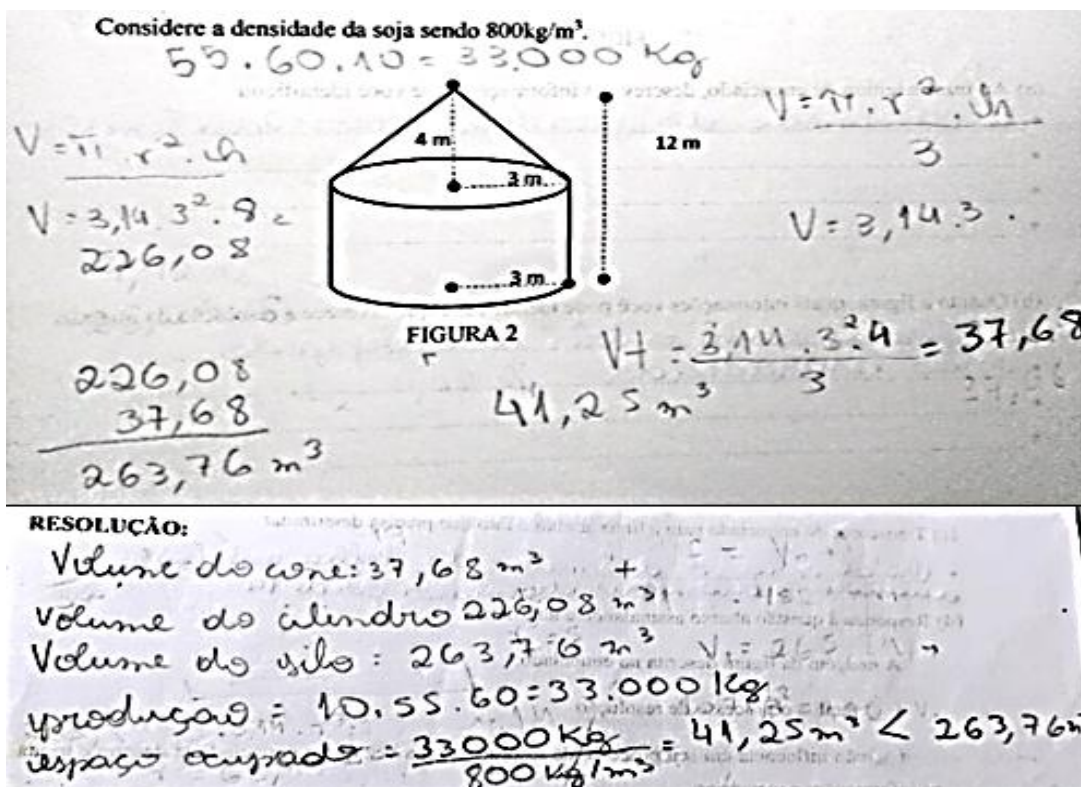 Considere a densidade da soja sendo 800kg/m³.
55.60.10 = 33.000 Kg
V = π . r² . h
V = 3,14 . 3² . 8 =
226,08
4 m
3 m
3 m
12 m
FIGURA 2
V = π . r² . h
3
V = 3,14 . 3 .
Vt = 3,14 . 3² . 4 = 37,68
3
41,25 m³
226,08
37,68
263,76 m³
RESOLUÇÃO:
Volume do cone: 37,68 m³ +
Volume do cilindro 226,08 m³
Volume do silo: 263,76 m³
produção = 10.55.60 = 33.000 Kg
espaço ocupado = 33000 Kg = 41,25 m³ < 263,76m
800 Kg/m³